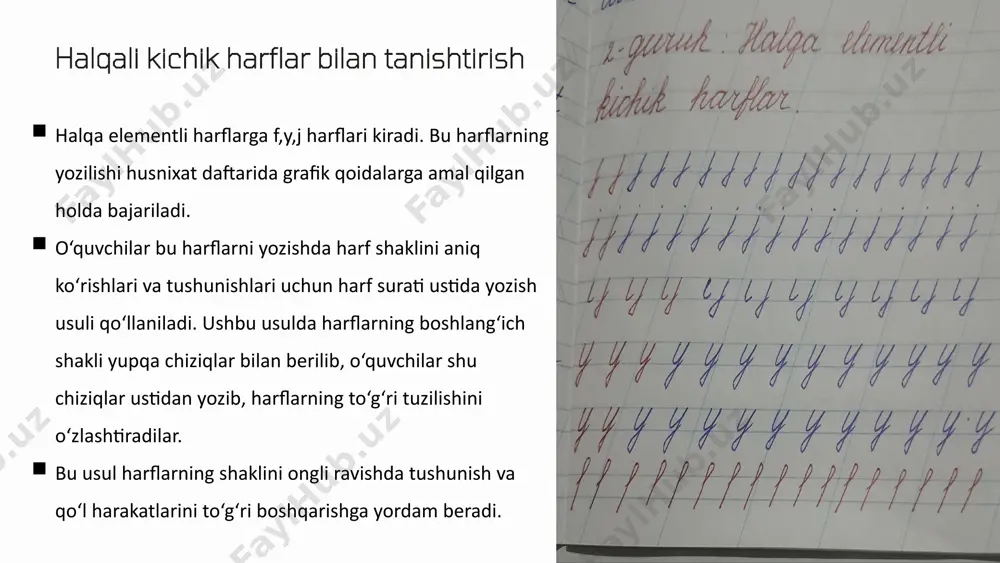 Halqali kichik harflar bilan tanishtirish
▪ Halqa elementli harflarga f,y,j harflari kiradi. Bu harflarning
yozilishi husnixat daftarida grafik qoidalarga amal qilgan
holda bajariladi.
▪ O‘quvchilar bu harflarni yozishda harf shaklini aniq
ko‘rishlari va tushunishlari uchun harf surati ustida yozish
usuli qo‘llaniladi. Ushbu usulda harflarning boshlang‘ich
shakli yupqa chiziqlar bilan berilib, o‘quvchilar shu
chiziqlar ustidan yozib, harflarning to‘g‘ri tuzilishini
o‘zlashtiradilar.
▪ Bu usul harflarning shaklini ongli ravishda tushunish va
qo‘l harakatlarini to‘g‘ri boshqarishga yordam beradi.
2-guruh: Halqa elementli
kichik harflar.
FaylHub.uz
FaylHub.uz
FaylHub.uz
FaylHub.uz
FaylHub.uz